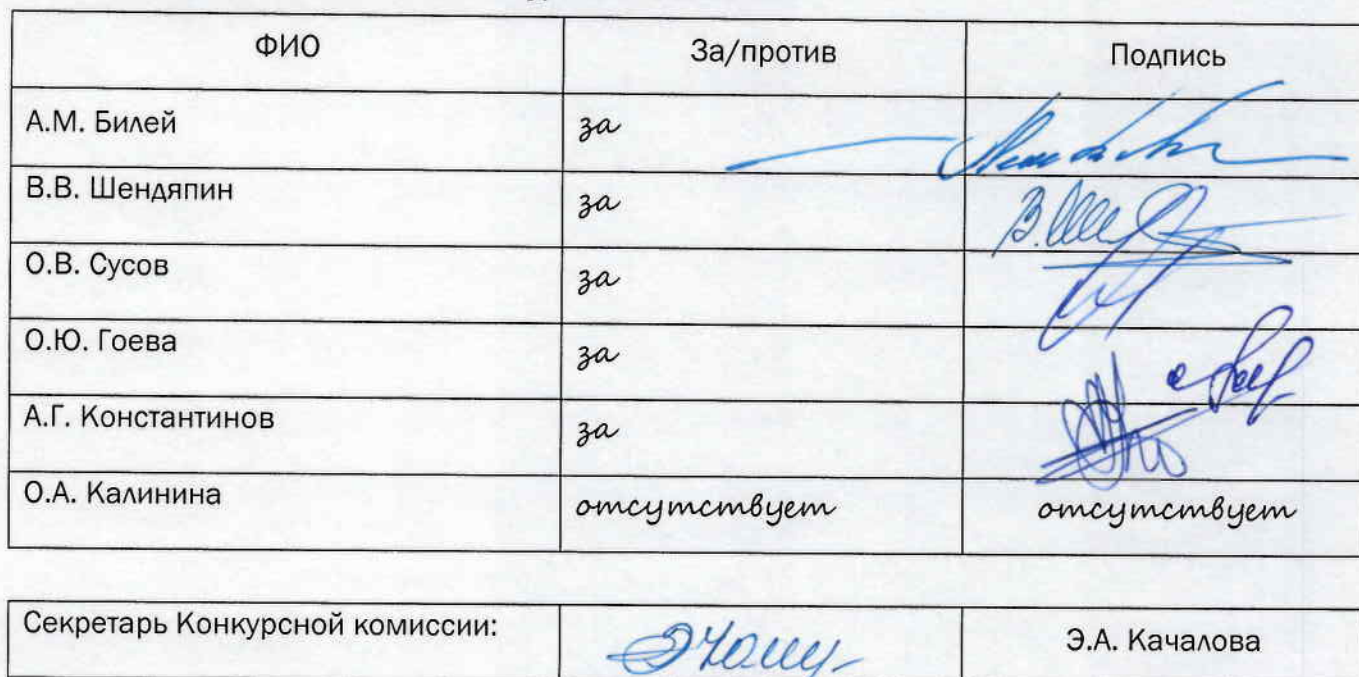 ФИО За/против Подпись
А.М. Билей за
В.В. Шендяпин за
О.В. Сусов за
О.Ю. Гоева за
А.Г. Константинов за
О.А. Калинина отсутствует отсутствует
Секретарь Конкурсной комиссии: Э.А. Качалова